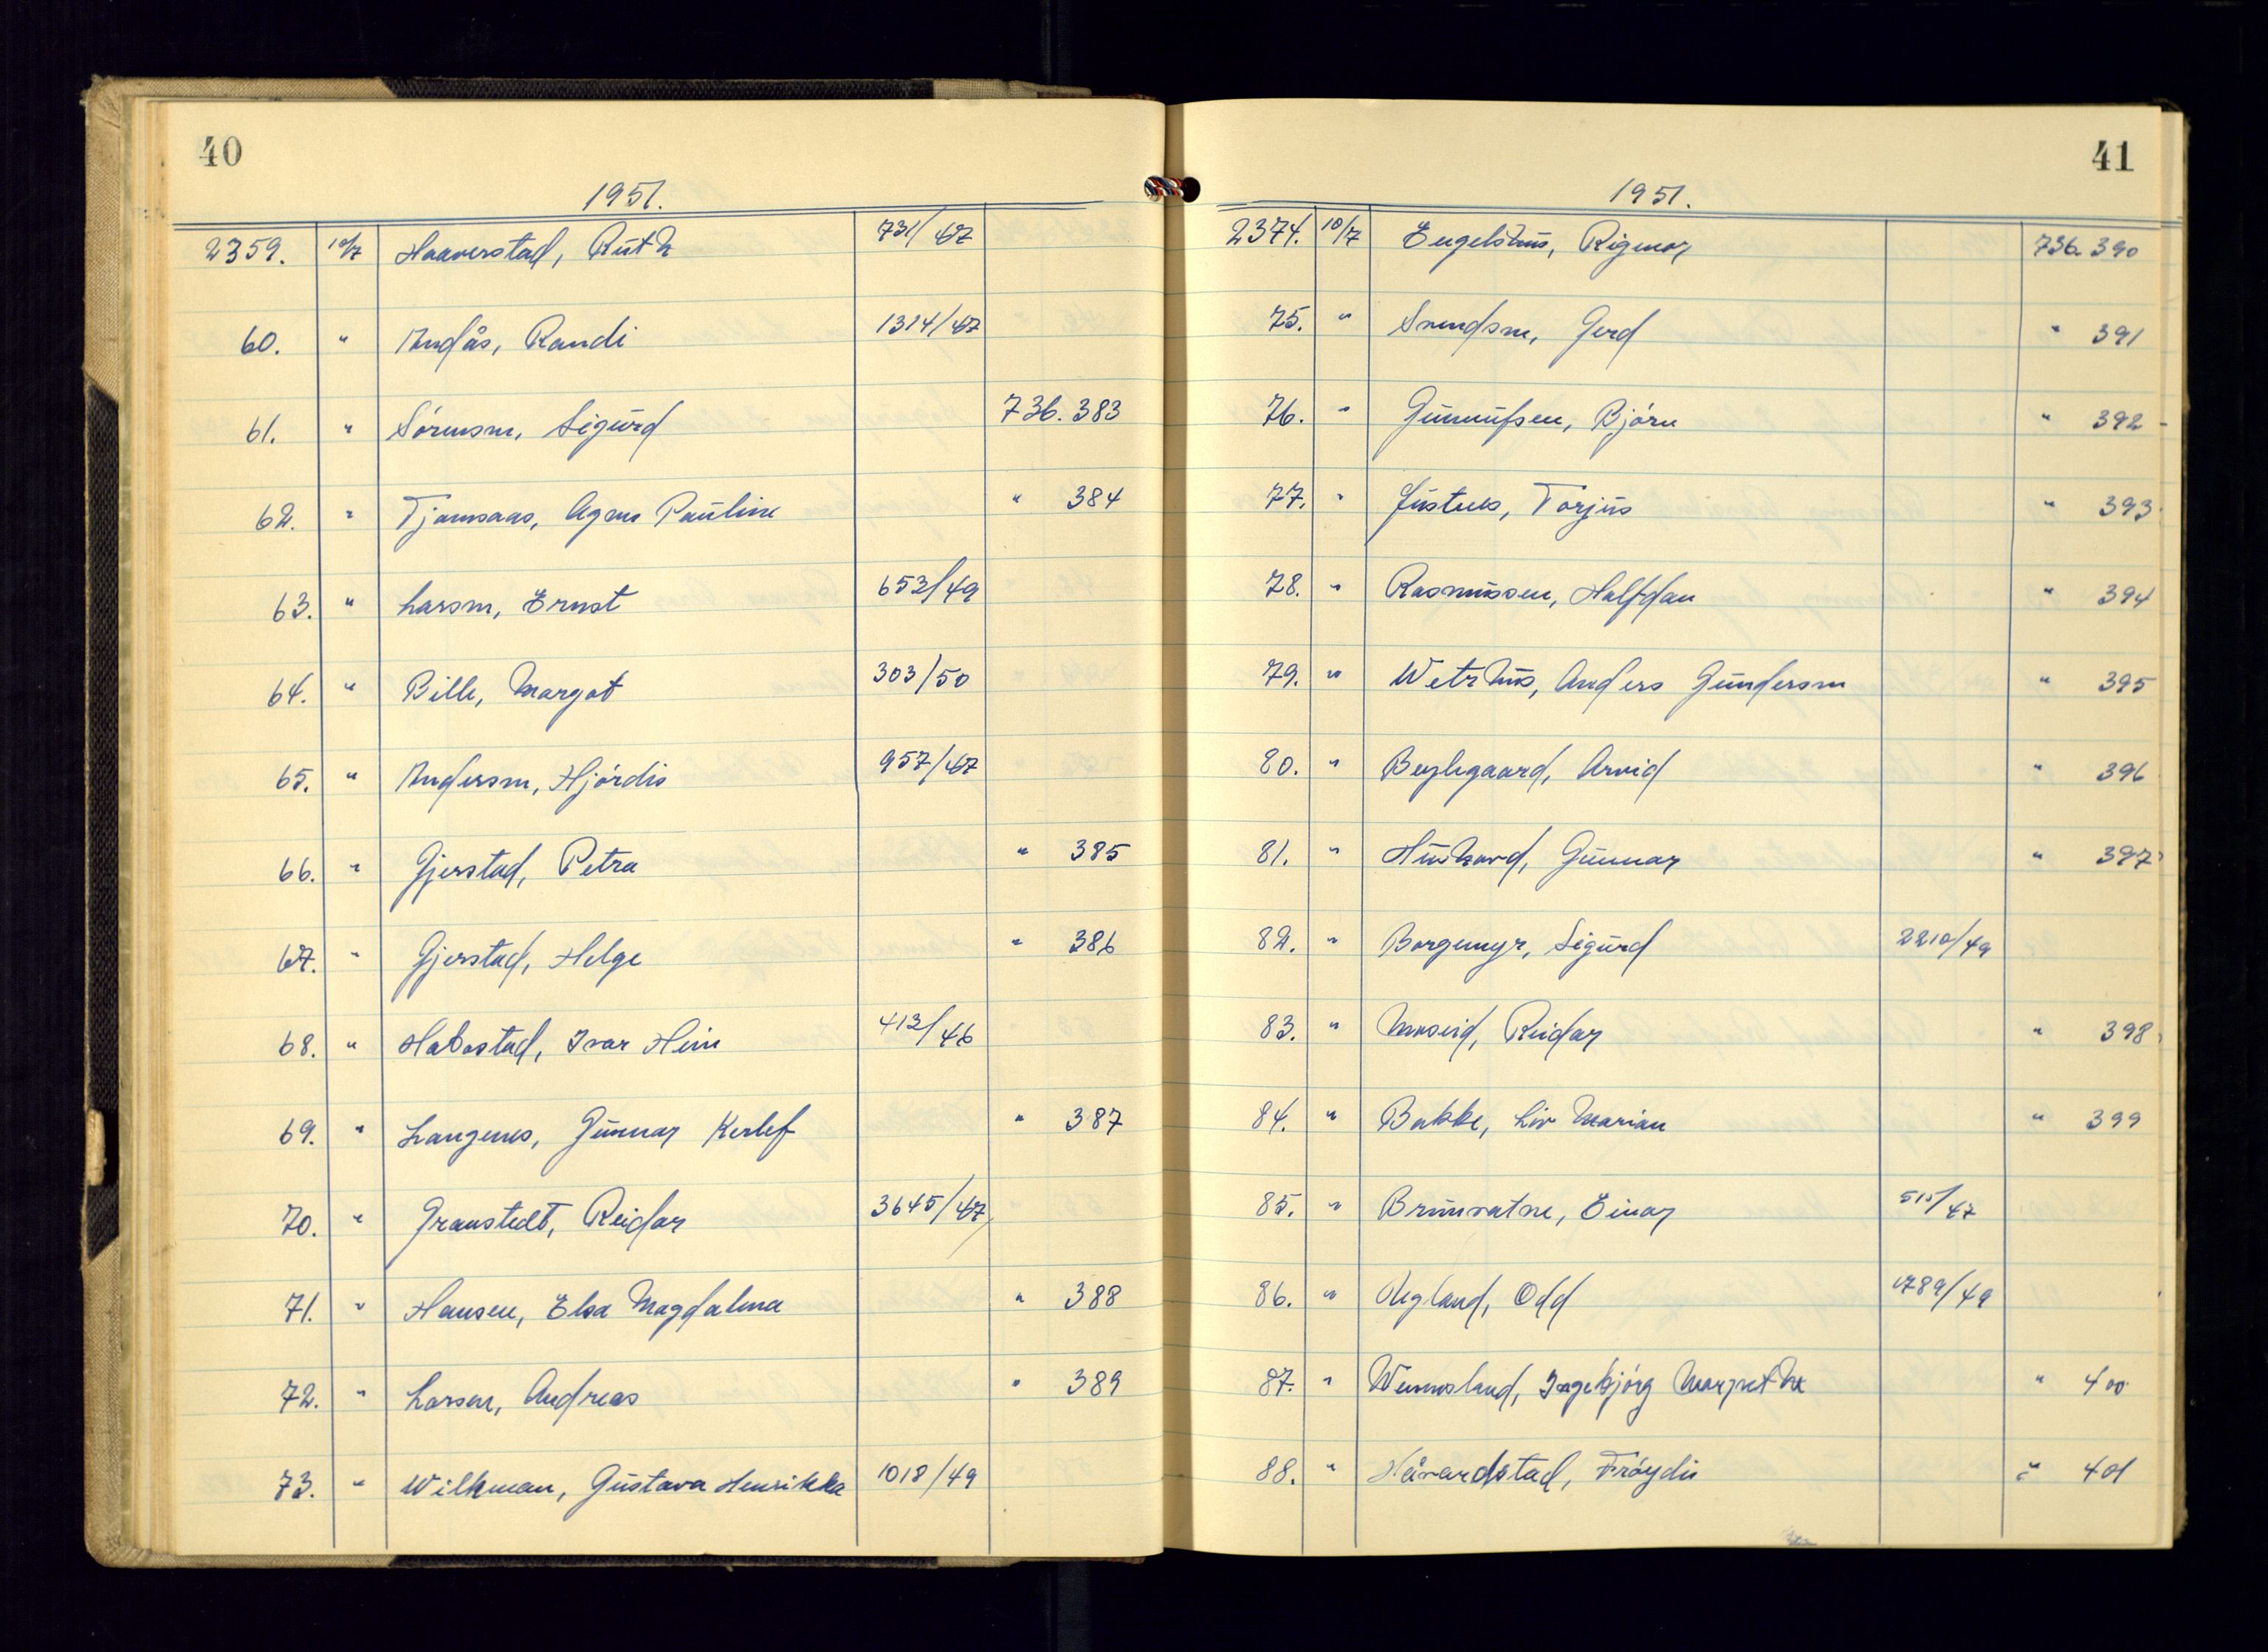 40
1951.
2359. 10/7 Haaverstad, Ruth 731/47
60. " Andås, Randi 1314/47
61. " Sörensen, Sigurd 736.383
62. " Tjomsaas, Agnes Pauline " 384
63. " Larsen, Ernst 653/49
64. " Bille, Margot 303/50
65. " Andersen, Hjördis 957/47
66. " Gjerstad, Petra " 385
67. " Gjerstad, Helge " 386
68. " Habostad, Ivar Hein 413/46
69. " Langenes, Gunnar Kerlef " 387
70. " Granstedt, Reidar 3645/47
71. " Hansen, Elsa Magdalena " 388
72. " Larsen, Andreas " 389
73. " Wilkman, Gustava Henrikka 1018/49
41
1951.
2374. 10/7 Engelshus, Rigmor 736.390
75. " Svendsen, Gerd " 391
76. " Gunnufsen, Björn " 392
77. " Justnes, Torjus " 393
78. " Rasmussen, Halfdan " 394
79. " Wetrhus, Anders Gundersen " 395
80. " Beylegaard, Arvid " 396
81. " Gunnar " 397
82. " Borgemyr, Sigurd 2210/49
83. " Moseid, Reidar " 398
84. " Bakke, Liv Marian " 399
85. " Brunvatne, Einar 515/47
86. " Regland, Odd 1789/49
87. " Wennesland, Ingebjörg Margrethe " 400
88. " Håvardstad, Fröydis " 401